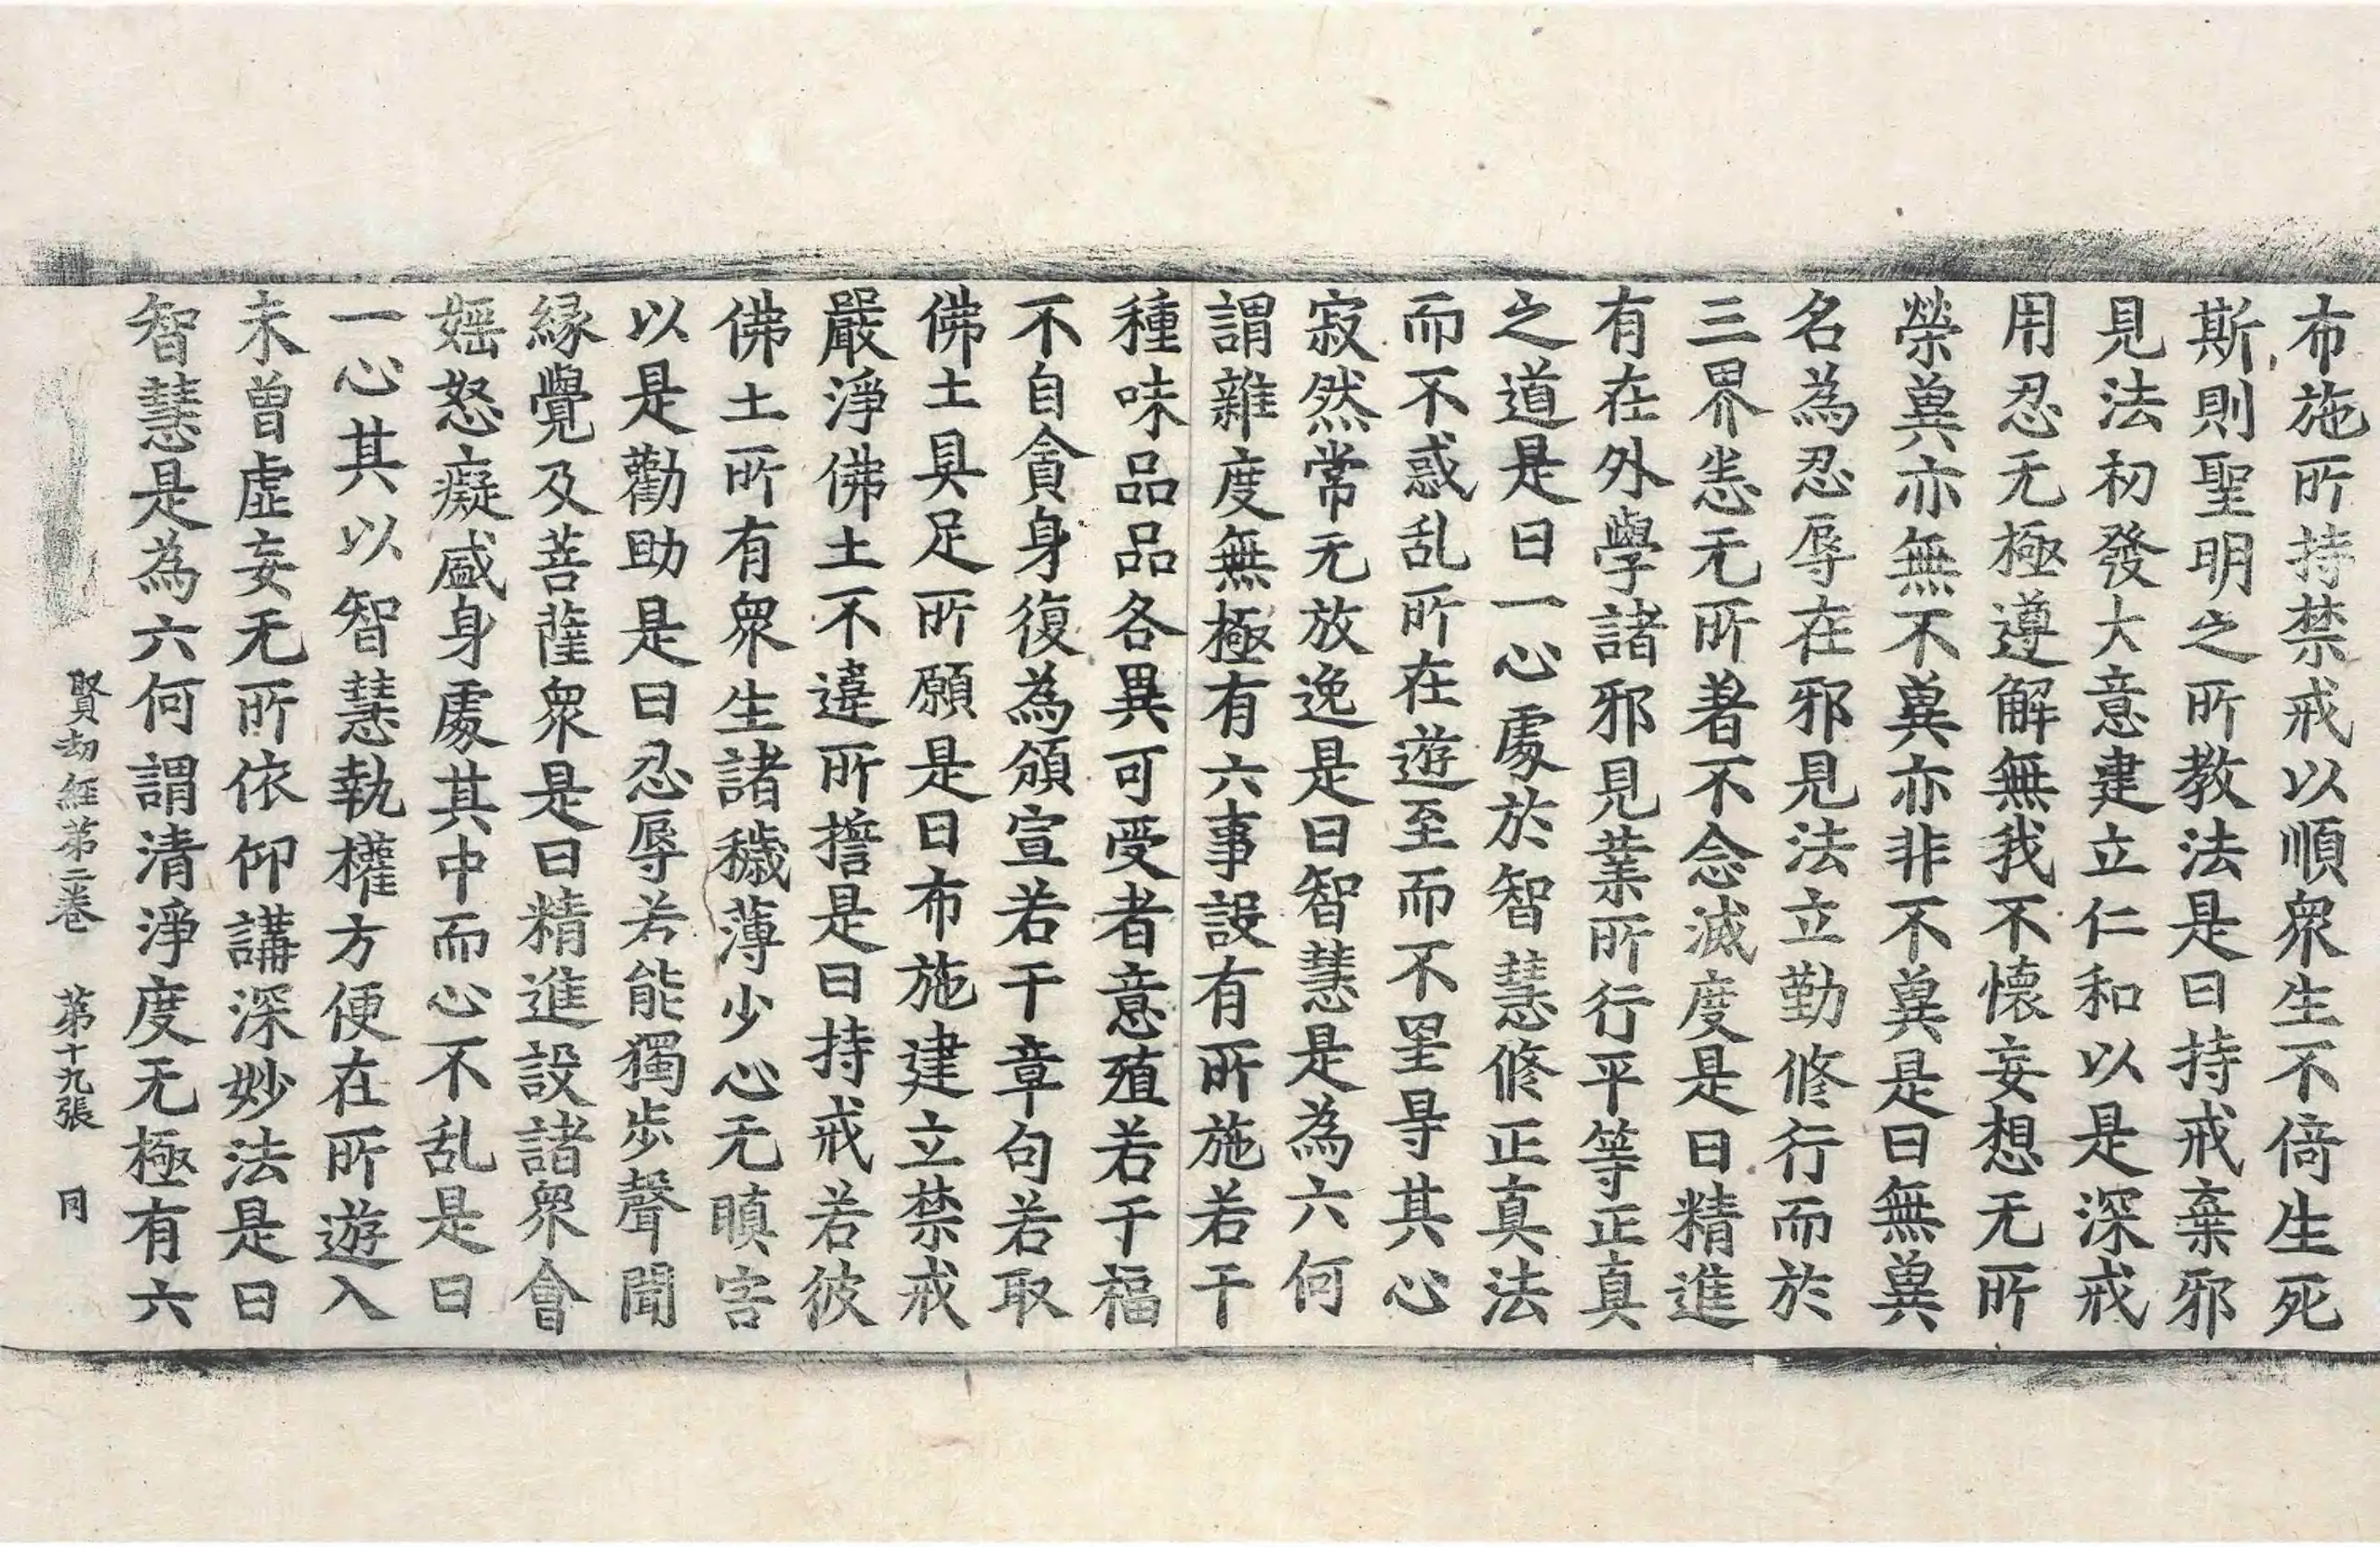 布施所持禁戒以順衆生不倚生死
斯則聖明之所教法是曰持戒棄邪
見法初發大意建立仁和以是深戒
用忍无極遵解無我不懷妄想无所
榮兾亦無不兾亦非不兾是曰無兾
名為忍辱在邪見法立勤修行而於
三界恙无所著不念滅度是曰精進
有在外學諸邪見業所行平等正真
之道是曰一心處於智慧修正真法
而不惑乱所在遊至而不罣㝵其心
寂然常无放逸是曰智慧是為六何
謂雜度無極有六事設有所施若干
種味品品各異可受者意殖若干福
不自貪身復為頒宣若干章句若取
佛土具足所願是曰布施建立禁戒
嚴淨佛土不違所擔是曰持戒若彼
佛土所有衆生諸穢薄少心无瞋害
以是勸助是曰忍辱若能獨步聲聞
緣覺及菩薩衆是曰精進設諸衆會
婬怒癡盛身處其中而心不乱是曰
一心其以智慧執權方便在所遊入
未曾虛妄无所依仰講深妙法是曰
智慧是為六何謂清淨度无極有六
賢劫經第二卷 第十九張 同